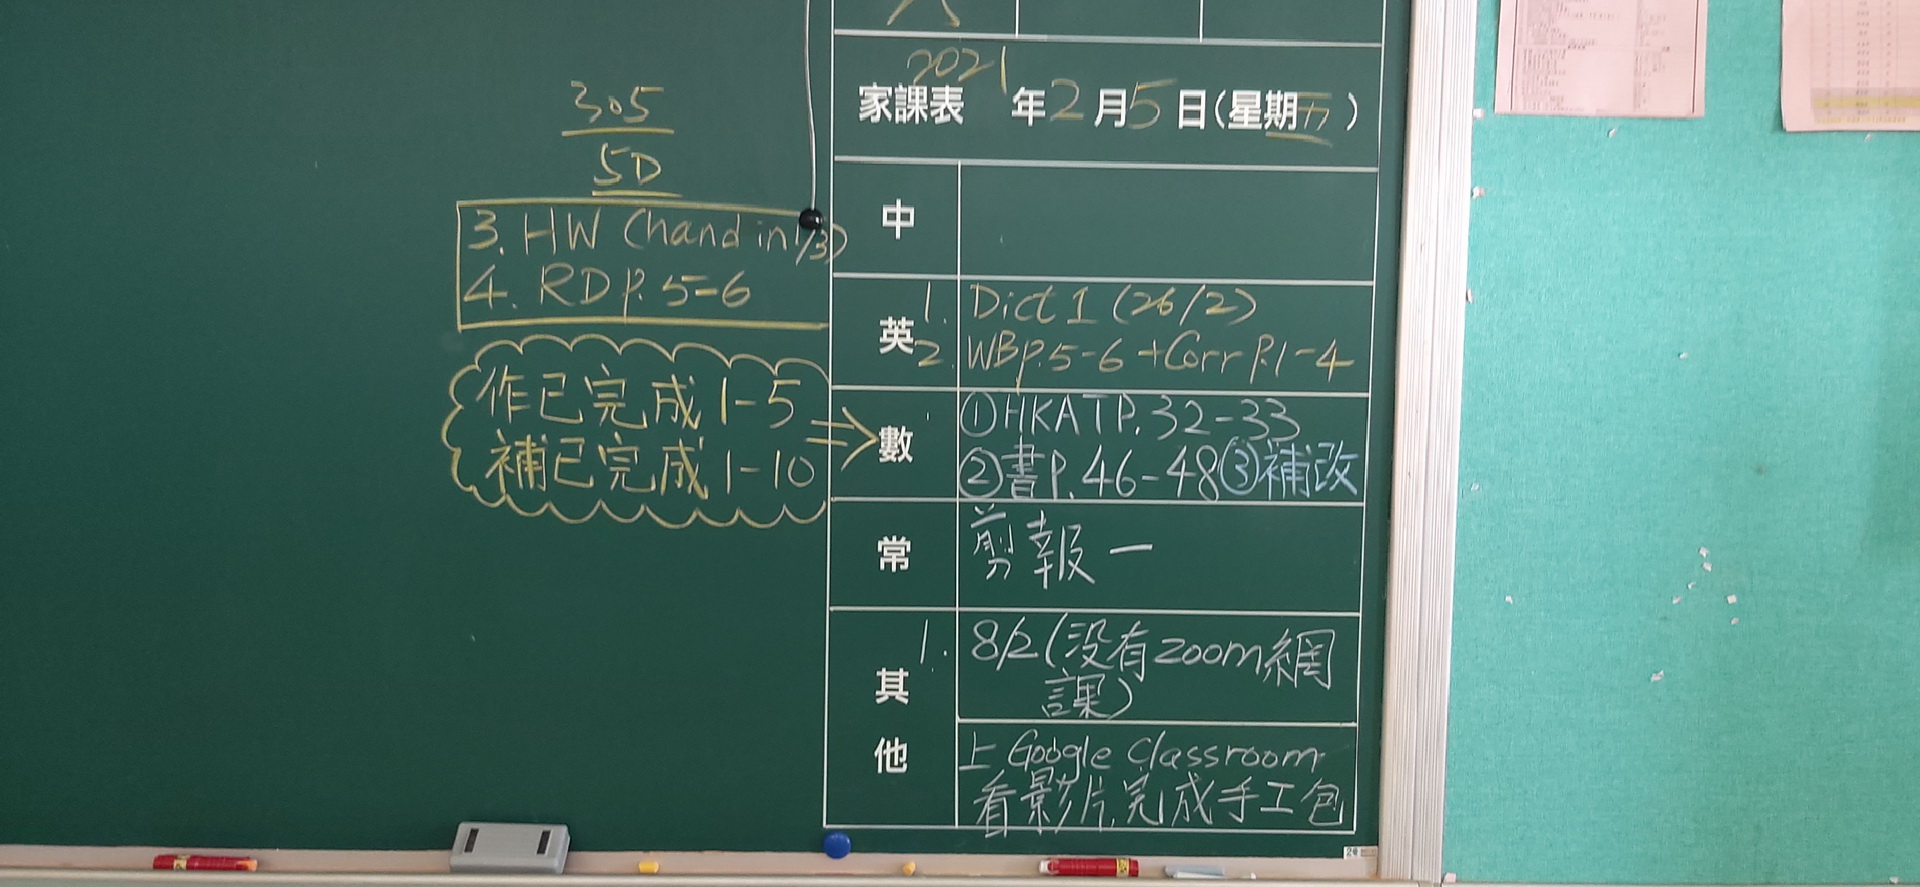 305
5D
3. HW (hand in 1/3)
4. RD P. 5-6
作已完成1-5
補已完成1-10
家課表 2021年2月5日(星期五)
中
英
1. Dict 1 (26/2)
2. WB p.5-6 + Corr P.1-4
數
①HKAT P.32-33
②書P.46-48③補改
常
剪報一
其他
1. 8/2(没有zoom網
課)
上 Google Classroom
看影片,完成手工包